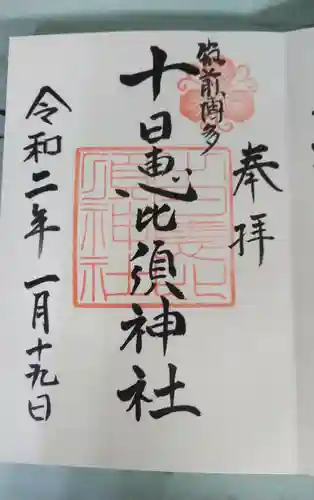 奉拝
筑前博多
十日恵比須神社
令和二年一月十九日